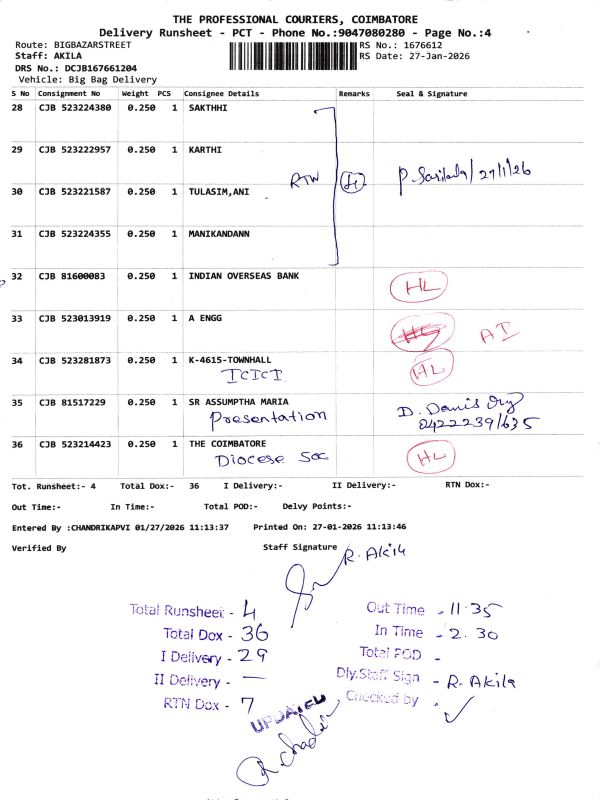 THE PROFESSIONAL COURIERS, COIMBATORE
Delivery Runsheet - PCT - Phone No.:9047080280 - Page No.:4
Route: BIGBAZARSTREET
RS No.: 1676612
Staff: AKILA
RS Date: 27-Jan-2026
DRS No.: DCJB167661204
Vehicle: Big Bag Delivery
S No Consignment No Weight PCS Consignee Details Remarks Seal & Signature
28 CJB 523224380 0.250 1 SAKTHHI
29 CJB 523222957 0.250 1 KARTHI
RTW 4 27/1/26
30 CJB 523221587 0.250 1 TULASIM,ANI
31 CJB 523224355 0.250 1 MANIKANDANN
32 CJB 81600083 0.250 1 INDIAN OVERSEAS BANK HL
33 CJB 523013919 0.250 1 A ENGG HL AI
34 CJB 523281873 0.250 1 K-4615-TOWNHALL HL
ICICI
35 CJB 81517229 0.250 1 SR ASSUMPTHA MARIA
Presentation 04222391635
36 CJB 523214423 0.250 1 THE COIMBATORE HL
Diocese Soc
Tot. Runsheet:- 4 Total Dox:- 36 I Delivery:- II Delivery:- RTN Dox:-
Out Time:- In Time:- Total POD:- Delvy Points:-
Entered By :CHANDRIKAPVI 01/27/2026 11:13:37 Printed On: 27-01-2026 11:13:46
Verified By Staff Signature R. Akila
Total Runsheet - 4 Out Time - 11.35
Total Dox - 36 In Time - 2.30
I Delivery - 29 Total POD -
II Delivery - — Dly.Staff Sign - R. Akila
RTN Dox - 7 Checked by -
UPDATED